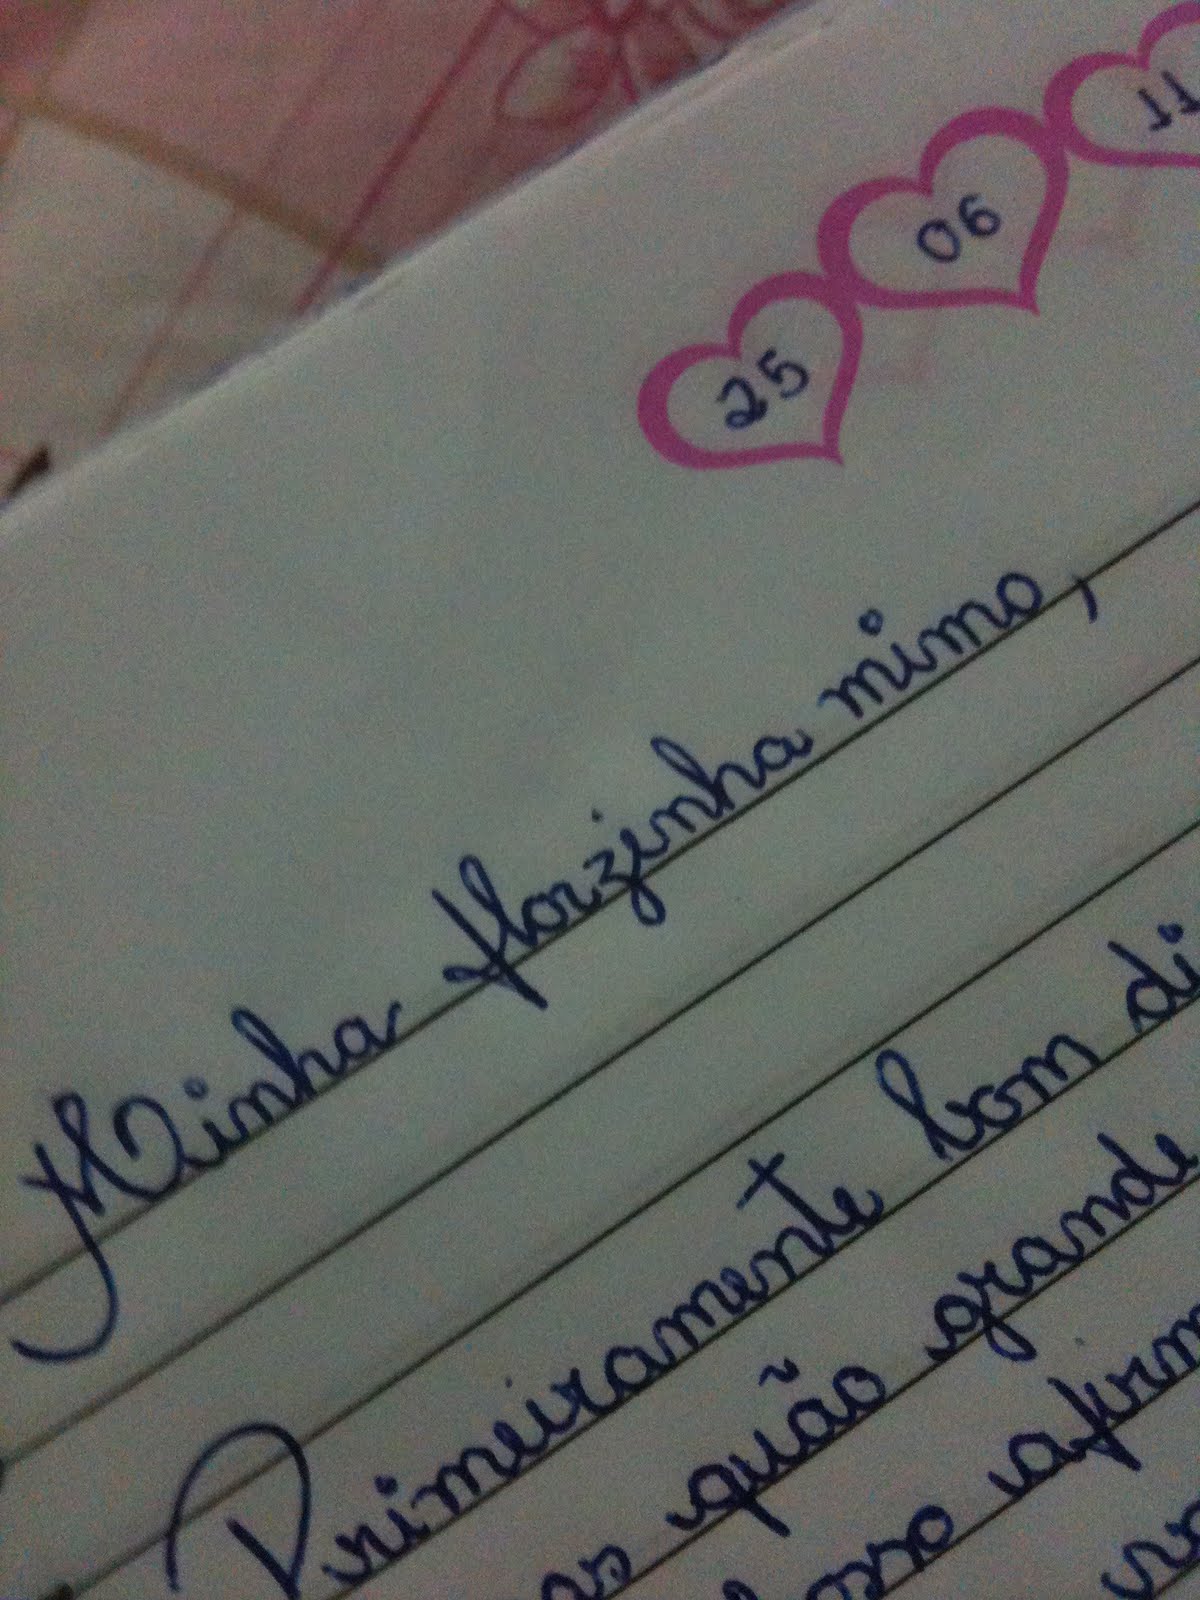 25 06 11
Minha florzinha mimo,
Primeiramente bom di
quão grande
afirm